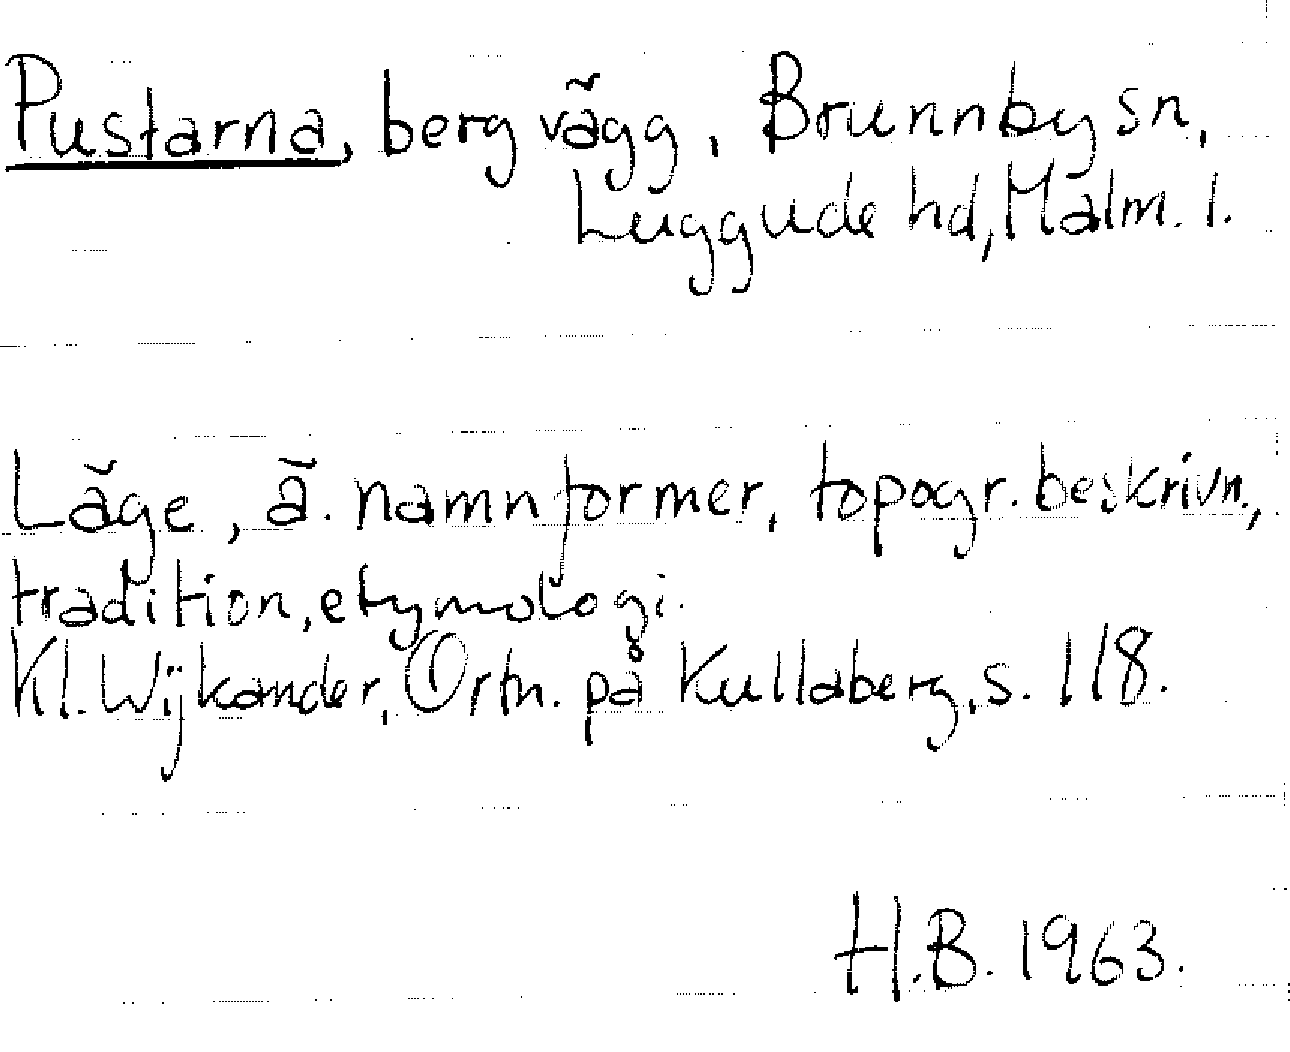 Pustarna, bergvägg, Brunnby sn,
Luggude hd, Malm. l.
Läge, ä. namnformer, topogr. beskrivn.,
tradition, etymologi.
Kl. Wijkander, Ortn. på Kullaberg, s. 118.
H.B. 1963.